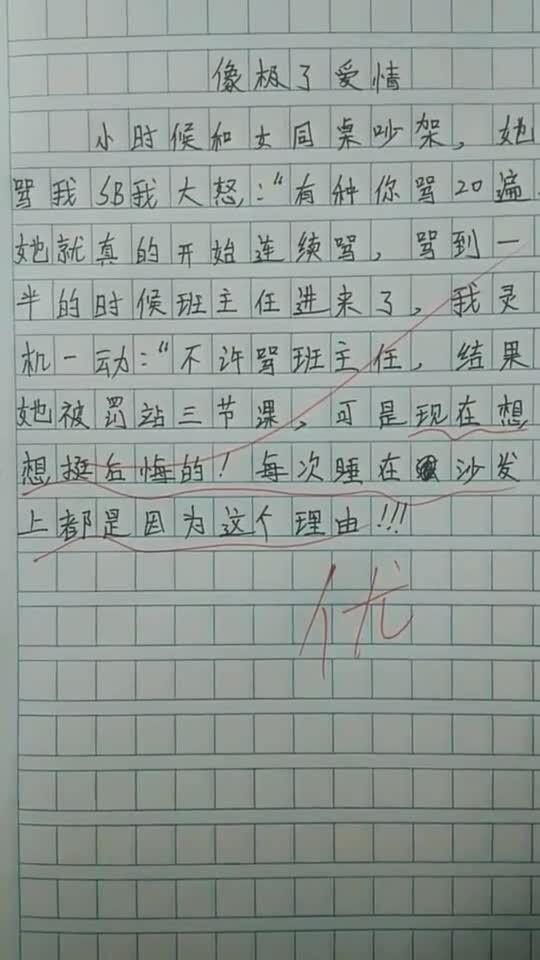 像极了爱情
小时候和女同桌吵架，她
骂我SB我大怒：“有种你骂20遍
她就真的开始连续骂，骂到一
半的时候班主任进来了，我灵
机一动：“不许骂班主任，结果
她被罚站三节课，可是现在想
想挺后悔的！每次睡在沙发
上都是因为这个理由!!!
优